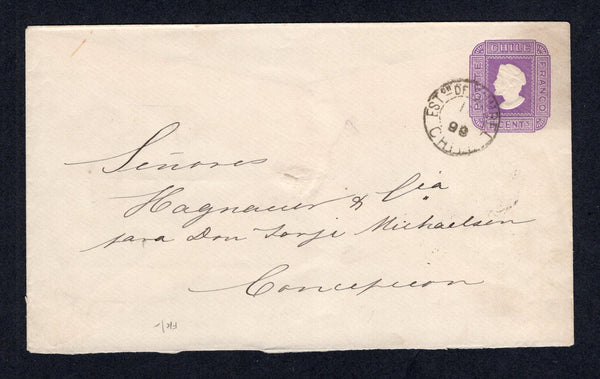 CHILE
PORTE FRANCO
CENTs
ESTon DE
99
CHILE
Señores
Hagnauer & Cia
para Don Jorje Michaelsen
Concepcion